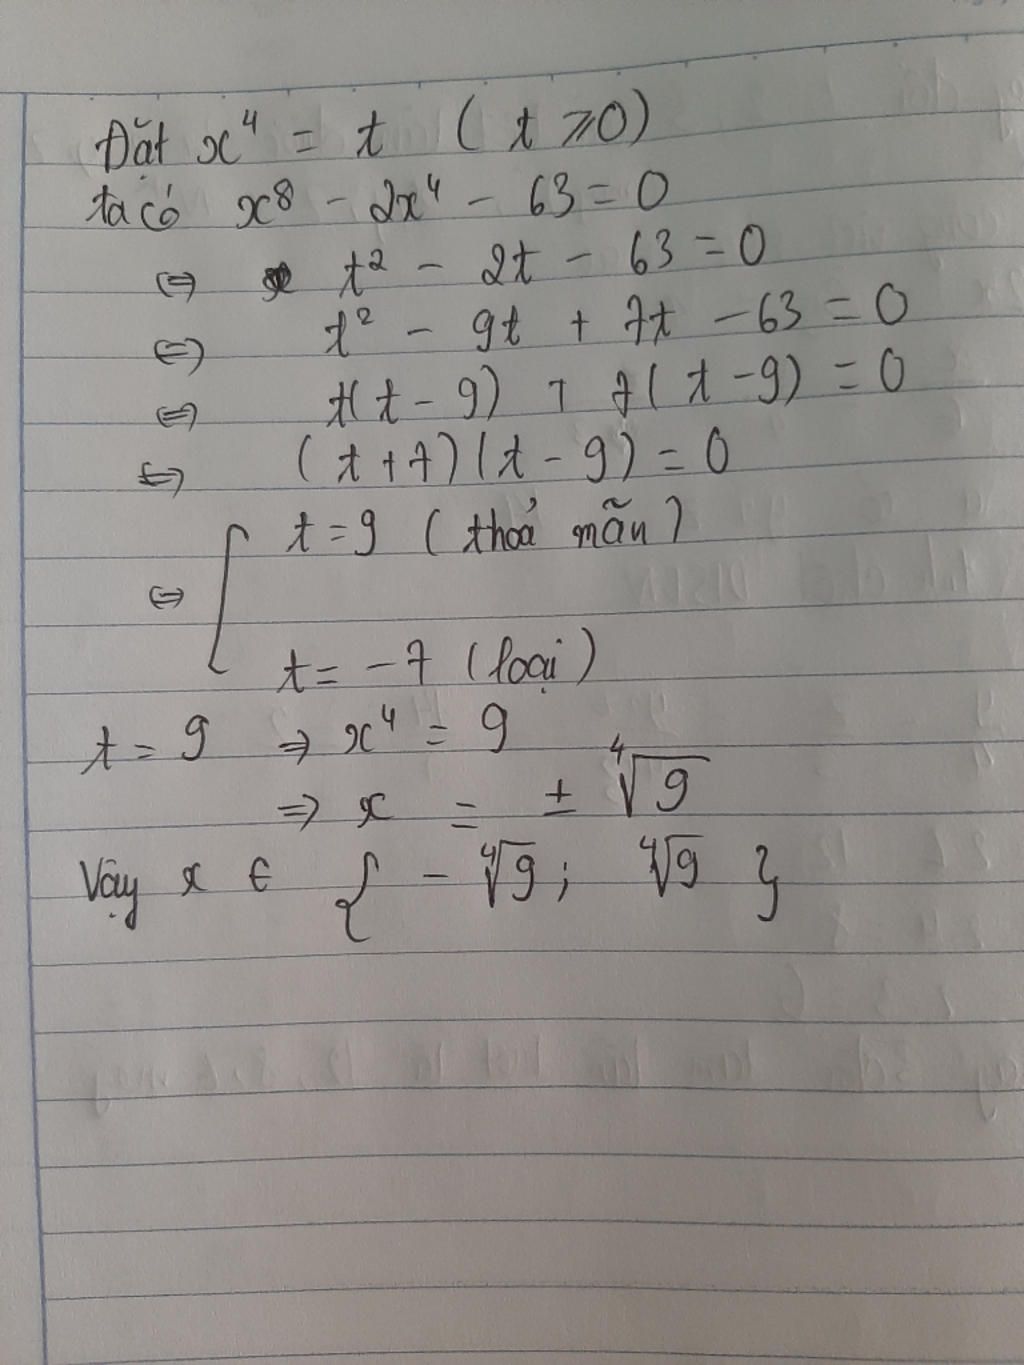 Đặt x⁴ = t ( t ⩾ 0)
ta có x⁸ - 2x⁴ - 63 = 0
⇔ t² - 2t - 63 = 0
⇔ t² - 9t + 7t - 63 = 0
⇔ t(t - 9) + 7(t - 9) = 0
⇔ (t + 7)(t - 9) = 0
⇔ [ t = 9 (thoả mãn)
t = -7 (loại)
t = 9 ⇒ x⁴ = 9
⇒ x = ± ⁴√9
Vậy x ∈ { - ⁴√9 ; ⁴√9 }